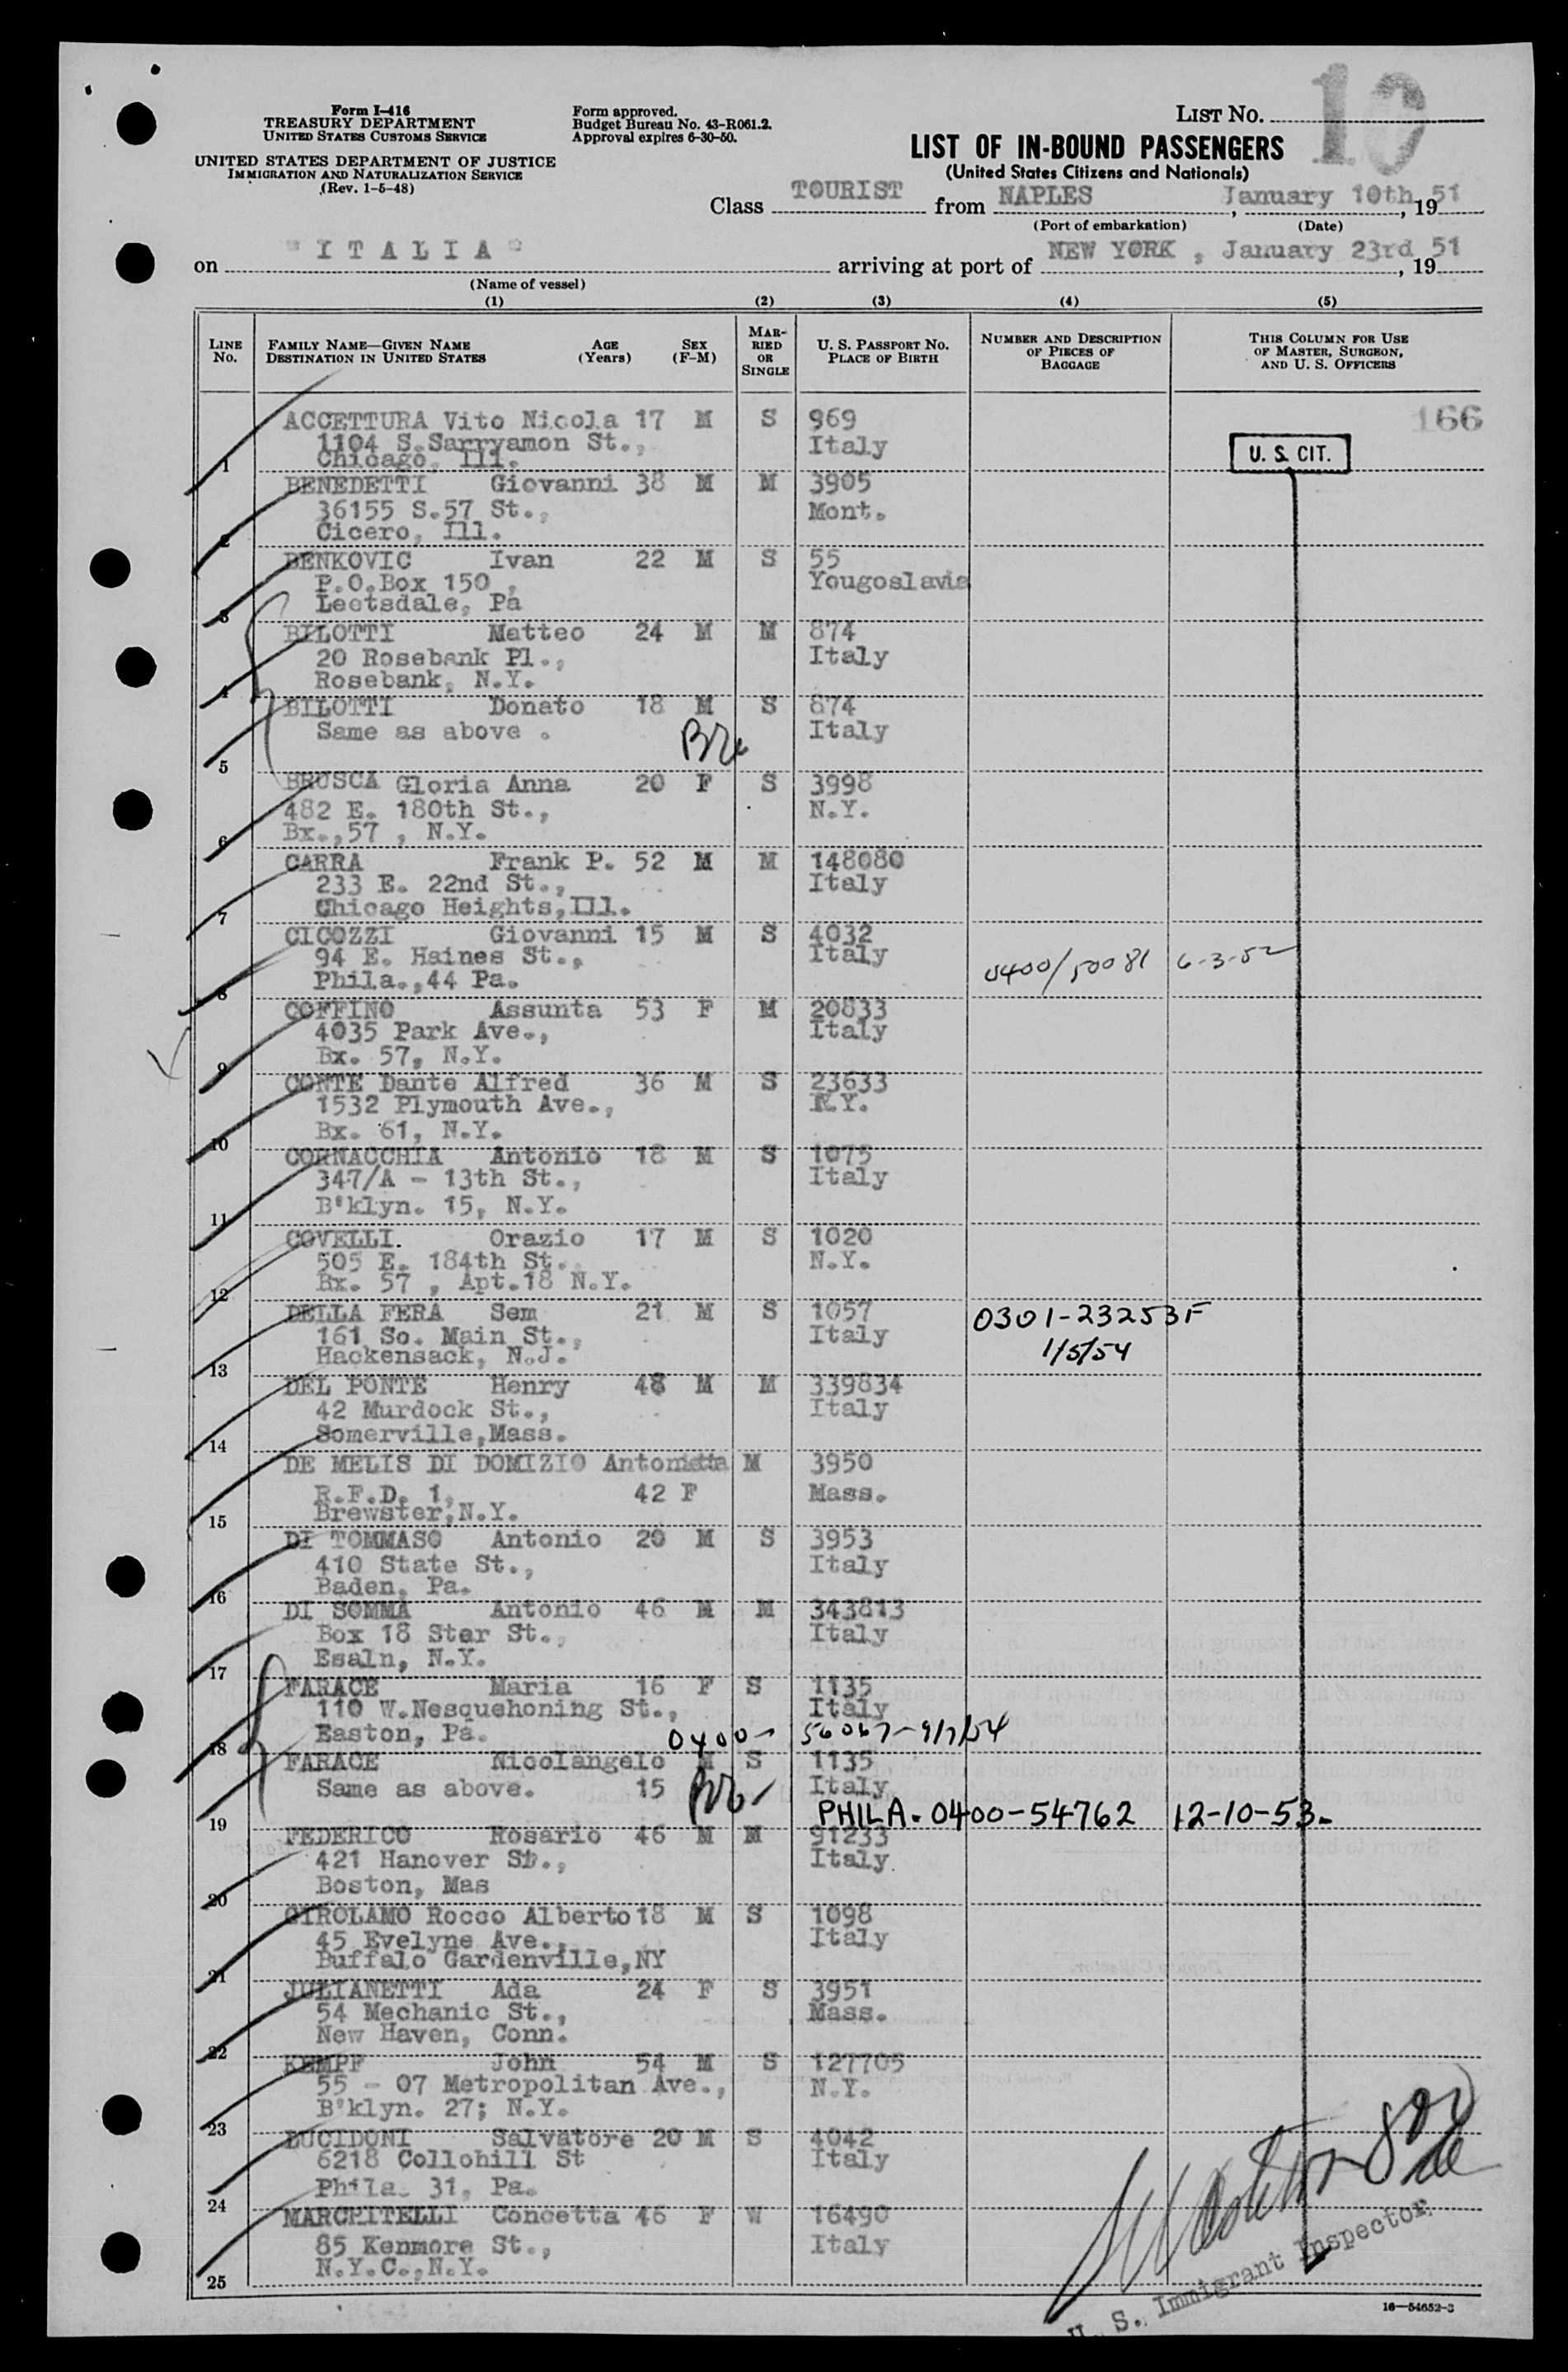 Form I-416
TREASURY DEPARTMENT
UNITED STATES CUSTOMS SERVICE
UNITED STATES DEPARTMENT OF JUSTICE
IMMIGRATION AND NATURALIZATION SERVICE
(Rev. 1-5-48)
Form approved.
Budget Bureau No. 43-R061.2.
Approval expires 6-30-50.
LIST NO. 10
LIST OF IN-BOUND PASSENGERS
(United States Citizens and Nationals)
Class TOURIST from NAPLES, January 10th, 1951
(Port of embarkation) (Date)
on "ITALIA" arriving at port of NEW YORK, January 23rd, 1951
(Name of vessel)
(1) (2) (3) (4) (5)
LINE No. FAMILY NAME—GIVEN NAME DESTINATION IN UNITED STATES AGE (Years) SEX (F-M) MARRIED OR SINGLE U. S. PASSPORT NO. PLACE OF BIRTH NUMBER AND DESCRIPTION OF PIECES OF BAGGAGE THIS COLUMN FOR USE OF MASTER, SURGEON, AND U. S. OFFICERS
166
ACCETTURA Vito Nicola 17 M S 969
1104 S.Sarryamon St., Italy
1 Chicago, Ill.
U. S. CIT.
BENEDETTI Giovanni 38 M M 3905
36155 S.57 St., Mont.
2 Cicero, Ill.
BENKOVIC Ivan 22 M S 55
P.O.Box 150 , Yougoslavia
3 Leetsdale, Pa
BILOTTI Matteo 24 M M 874
20 Rosebank Pl., Italy
4 Rosebank, N.Y.
BILOTTI Donato 18 M S 874
Same as above . Italy
5
BRUSCA Gloria Anna 20 F S 3998
482 E. 180th St., N.Y.
6 Bx.,57 , N.Y.
CARRA Frank P. 52 M M 148080
233 E. 22nd St., Italy
7 Chicago Heights,Ill.
CICOZZI Giovanni 15 M S 4032
94 E. Haines St., Italy 0400/50081 6-3-52
8 Phila.,44 Pa.
COFFINO Assunta 53 F M 20833
4035 Park Ave., Italy
9 Bx. 57, N.Y.
CONTE Dante Alfred 36 M S 23633
1532 Plymouth Ave., N.Y.
10 Bx. 61, N.Y.
CORNACCHIA Antonio 18 M S 1075
347/A - 13th St., Italy
11 B'klyn. 15, N.Y.
COVELLI. Orazio 17 M S 1020
505 E. 184th St. N.Y.
12 Bx. 57 , Apt.18 N.Y.
DELLA FERA Sem 21 M S 1057 0301-23253F
161 So. Main St., Italy 1/5/54
13 Hackensack, N.J.
DEL PONTE Henry 48 M M 339834
42 Murdock St., Italy
14 Somerville,Mass.
DE MELIS DI DOMIZIO Antonietta M 3950
R.F.D. 1, 42 F Mass.
15 Brewster,N.Y.
DI TOMMASO Antonio 20 M S 3953
410 State St., Italy
16 Baden, Pa.
DI SOMMA Antonio 46 M M 343813
Box 18 Ster St., Italy
17 Esaln, N.Y.
FARACE Maria 16 F S 1135
110 W.Nesquehoning St., Italy
18 Easton, Pa. 0400- 56067-9/7/54
FARACE Nicolangelo M S 1135
Same as above. 15 Italy
19 PHILA. 0400-54762 12-10-53.
FEDERICO Rosario 46 M M 91233
421 Hanover St., Italy
20 Boston, Mas
GIROLAMO Rocco Alberto 18 M S 1098
45 Evelyne Ave., Italy
21 Buffalo Gardenville,NY
JULIANETTI Ada 24 F S 3951
54 Mechanic St., Mass.
22 New Haven, Conn.
KEMPF John 54 M S 127705
55 - 07 Metropolitan Ave., N.Y.
23 B'klyn. 27; N.Y.
LUCIDONI Salvatore 20 M S 4042
6218 Collohill St Italy
24 Phila. 31, Pa.
MARCHITELLI Concetta 46 F W 16490
85 Kenmore St., Italy
25 N.Y.C.,N.Y.
U. S. Immigrant Inspector
16—54652-3